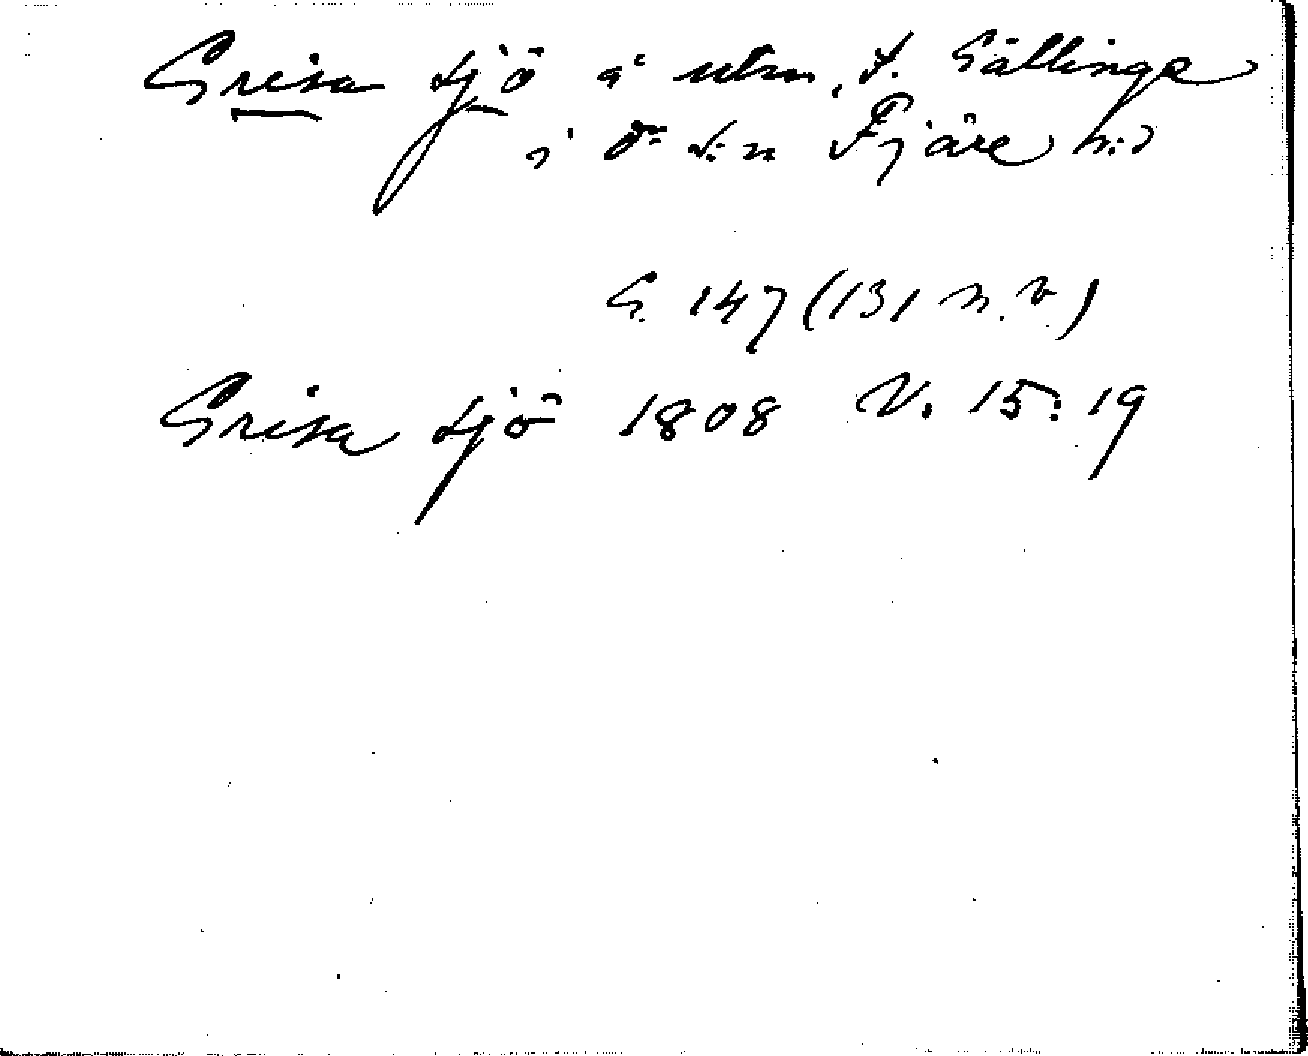 Grisa sjö å utm. t. Gällinge
i ör s:n Fjäre h:d
G. 147 (131 n. v.)
Grisa sjö 1808 V. 15:19